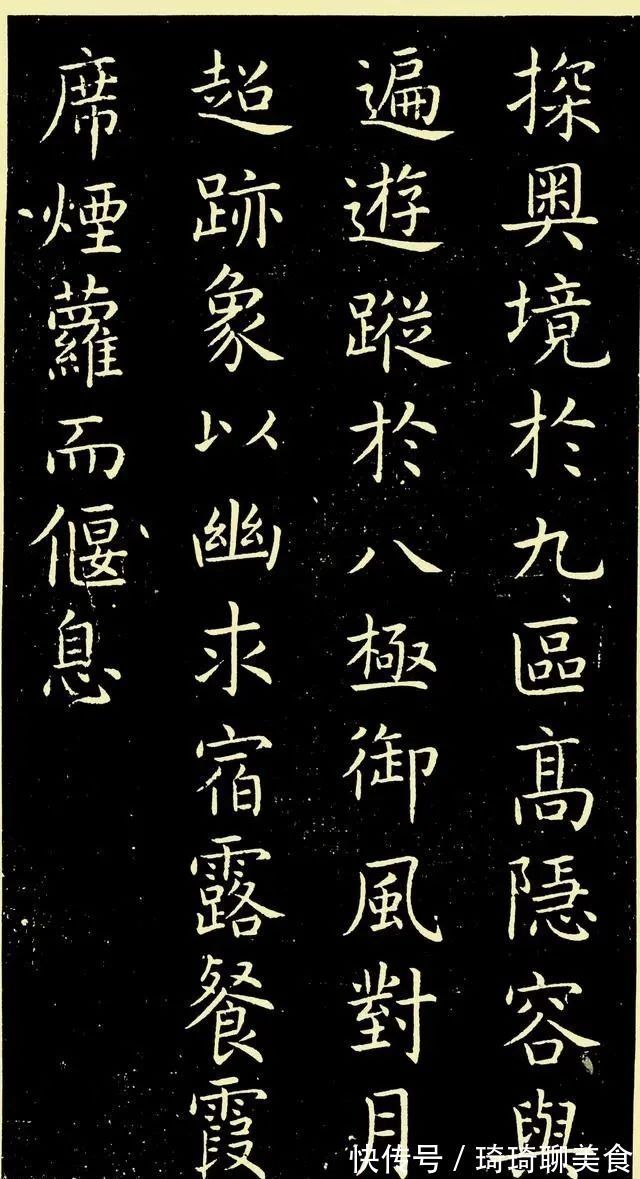 探奥境於九區高隱容與
遍遊蹤於八極御風對月
超跡象以幽求宿露餐霞
席煙蘿而偃息
快传号/琦琦聊美食